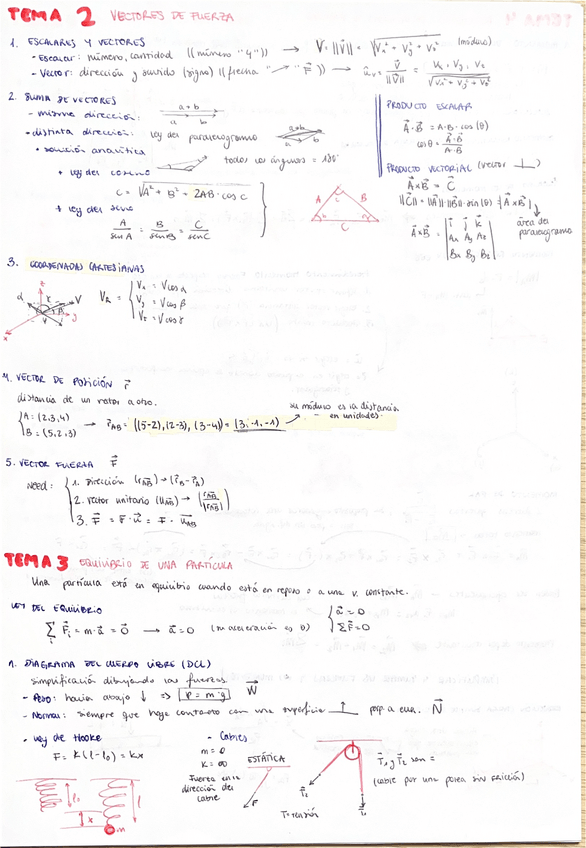 TEMA 2 VECTORES DE FUERZA
1. ESCALARES Y VECTORES
- Escalar: número, cantidad ((número "4")) → V = ||V⃗|| = √(Vx² + Vy² + Vz²) (módulo)
- Vector: dirección y sentido (signo) ((flecha "↗ F⃗")) → û_v = V⃗/||V⃗|| = Vx, Vy, Vz / √(Vx² + Vy² + Vz²)
2. SUMA DE VECTORES
- misma dirección: a+b a b
- distinta dirección: ley del paralelogramo a+b a b
• solución analítica
+ ley del coseno todos los ángulos = 180°
C = √(A² + B² - 2AB · cos c)
+ ley del seno
A/sin A = B/sin B = C/sin C
A B C
PRODUCTO ESCALAR
A⃗ · B⃗ = A·B·cos (θ)
cos θ = A⃗·B⃗ / A·B
PRODUCTO VECTORIAL (vector ⊥)
A⃗ x B⃗ = C⃗
||C⃗|| = ||A⃗||·||B⃗||·sin(θ) = |A⃗ x B⃗|
área del paralelogramo
A⃗ x B⃗ = | i⃗ j⃗ k⃗
Ax Ay Az
Bx By Bz |
3. COORDENADAS CARTESIANAS
V_R = { Vx = V cos α
Vy = V cos β
Vz = V cos γ
z V y x α β γ
4. VECTOR DE POSICIÓN r⃗
distancia de un vector a otro.
A: (2,3,4)
B = (5,2,3) → r⃗AB = ((5-2),(2-3),(3-4)) = (3,-1,-1)
su módulo es la distancia en unidades.
5. VECTOR FUERZA F⃗
Need: { 1. Dirección (rAB) → (r⃗B - r⃗A)
2. vector unitario (uAB) → (rAB/|rAB|)
3. F⃗ = F·u⃗ = F·uAB
TEMA 3 EQUILIBRIO DE UNA PARTÍCULA
Una partícula está en equilibrio cuando está en reposo o a una v. constante.
LEY DEL EQUILIBRIO
∑ F⃗i = m·a⃗ = 0⃗ → a⃗ = 0 (la aceleración es 0) { a⃗ = 0
∑F⃗ = 0
1. DIAGRAMA DEL CUERPO LIBRE (DCL)
simplificación dibujando las fuerzas.
- Peso: hacia abajo ↓ => P = m·g W⃗
- Normal: siempre que haya contacto con una superficie perp. a ella. N⃗
- Ley de Hooke
F = K(l - l₀) = kx
l₀ l x m
- Cables
m = 0
K = ∞
Fuerza en la dirección del cable
ESTÁTICA
F
T = tensión
T⃗2 T⃗1
T⃗1 y T⃗2 son =
(cable por una polea sin fricción)